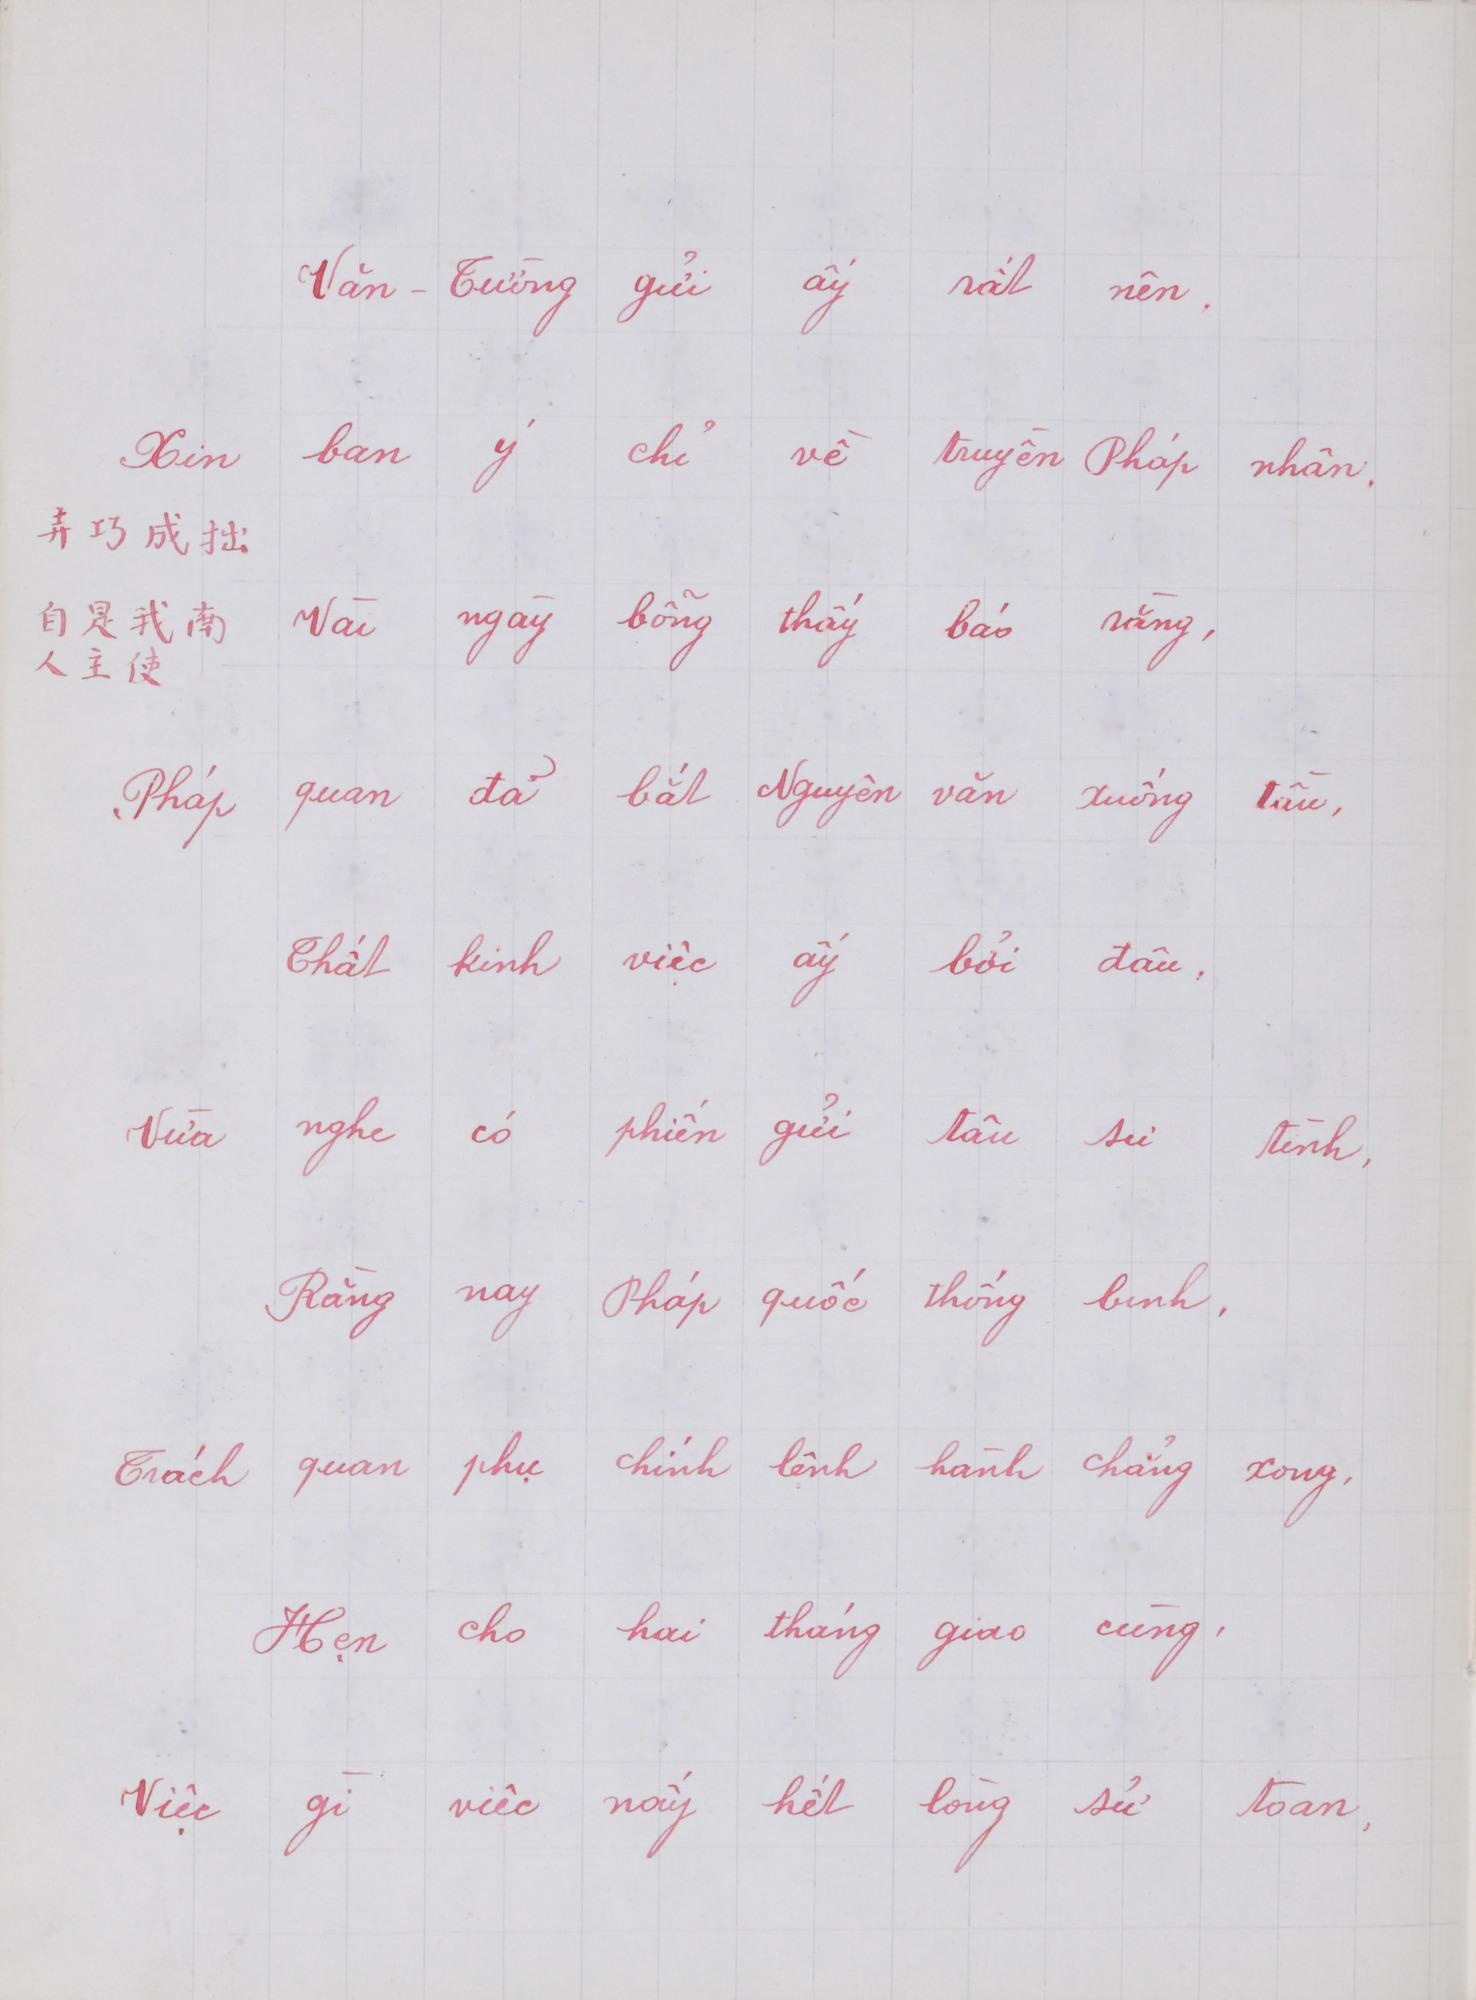 Văn-Tường gửi ấy rất nên.
Xin ban ý chỉ về truyền Pháp nhân.
弄巧成拙
自是我南
人主使
Vài ngày bỗng thấy báo rằng,
Pháp quan đả bắt Nguyên văn xuống tầu,
Thất kinh việc ấy bởi đâu.
Vừa nghe có phiến gửi tâu sự tình,
Rằng nay Pháp quốc thống binh,
Trách quan phụ chính lệnh hành chẳng xong,
Hẹn cho hai tháng giao cùng,
Việc gì việc nấy hết lòng sử toan,